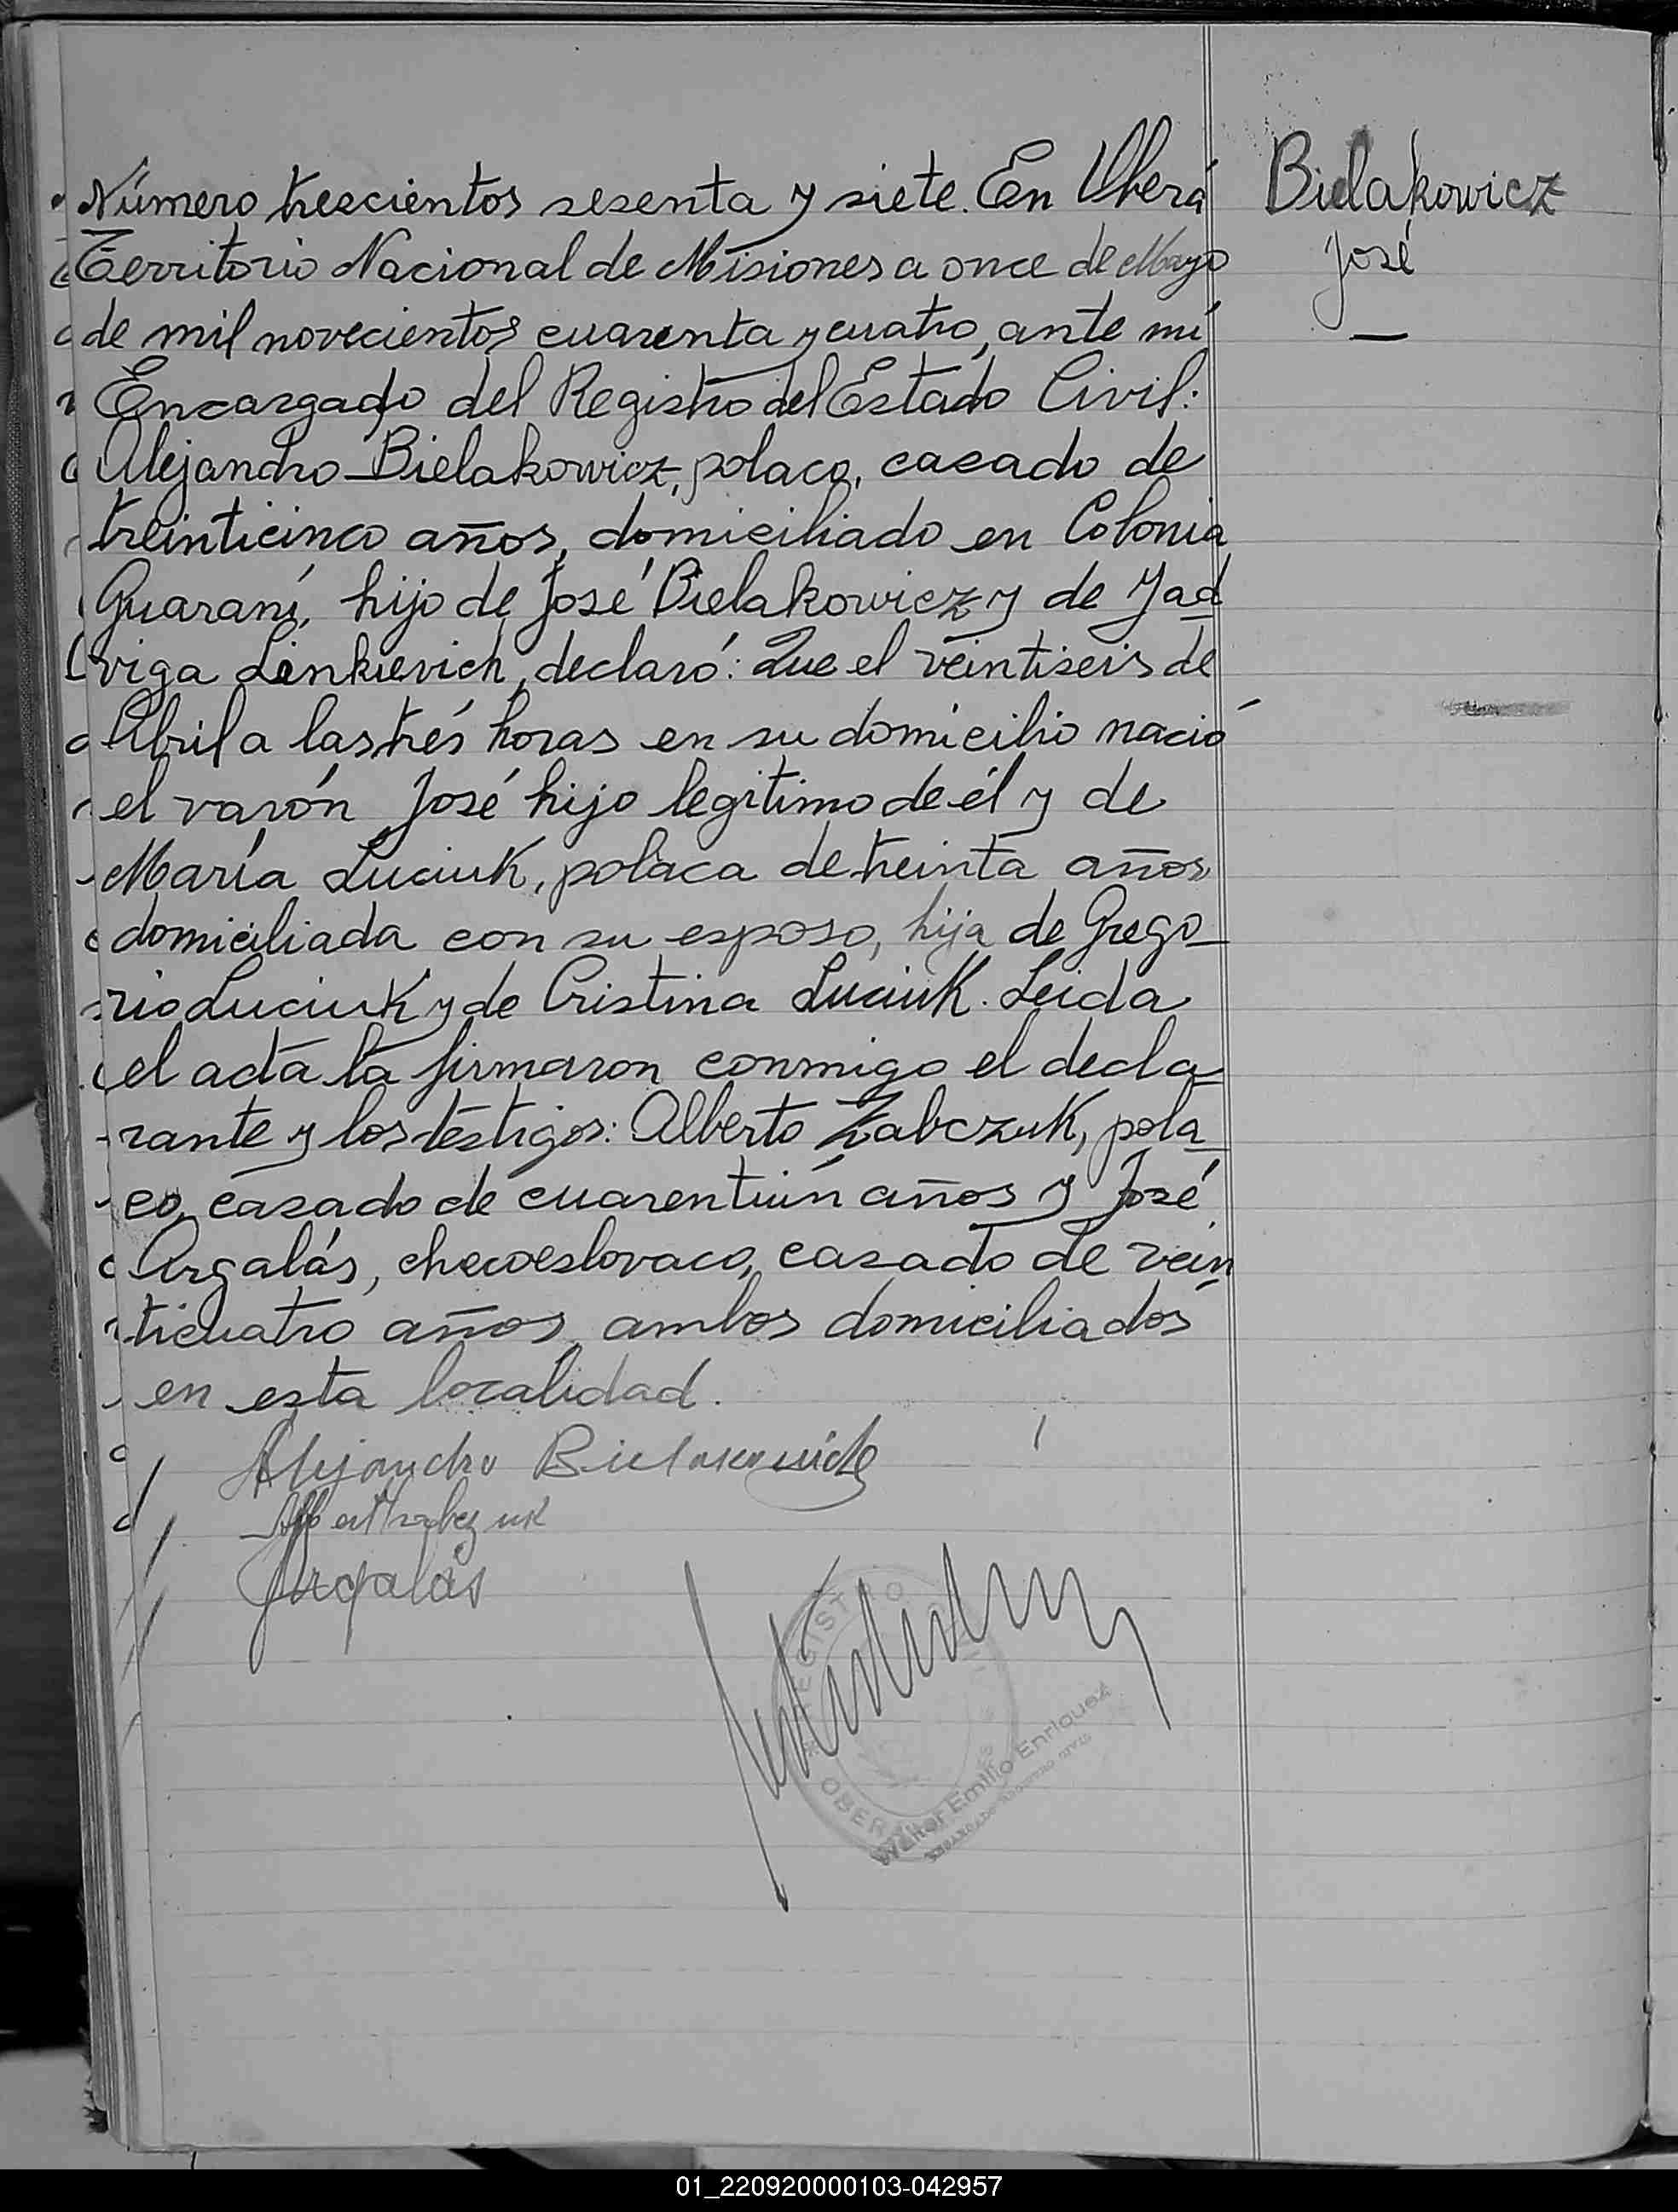 Número trescientos sesenta y siete. En Oberá
Territorio Nacional de Misiones a once de Mayo
de mil novecientos cuarenta y cuatro, ante mí
Encargado del Registro del Estado Civil:
Alejandro Bielakowicz, polaco, casado de
treinticinco años, domiciliado en Colonia
Guaraní, hijo de José Bielakowicz y de Jad
viga Linkievich, declaró: Que el veintiseis de
Abril a las trés horas en su domicilio nació
el varón José hijo legítimo de él y de
María Luciuk, polaca de treinta años
domiciliada con su esposo, hija de Grego
rio Luciuk y de Cristina Luciuk. Leida
el acta la firmaron conmigo el decla
rante y los testigos: Alberto Zabczuk, pola
co, casado de cuarentiún años y José
Argalás, checoeslovaco, casado de vein
ticuatro años, ambos domiciliados
en esta localidad.
Bielakowicz
José
Alejandro
Argalás
REGISTRO
OBERÁ
Walter Emilio Enriquez
01_220920000103-042957